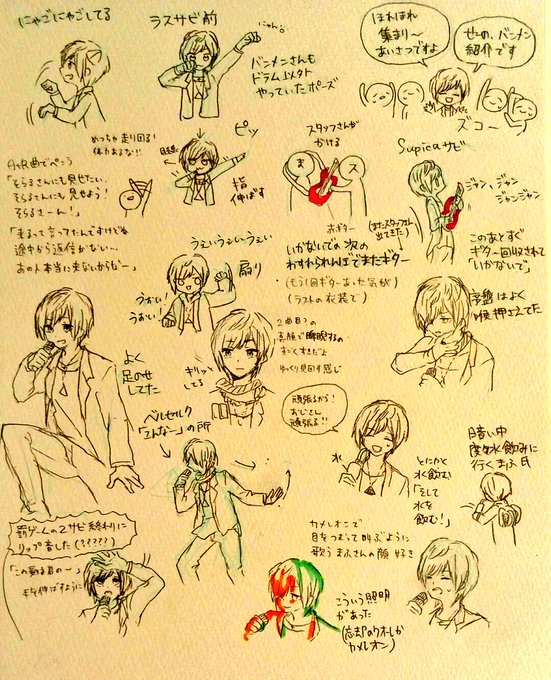 にゃごにゃごしてる
ラスサビ前
にゃん
バンメンさんも
ドラム以外
やっていたポーズ
ほれほれ
集まり〜
あいさつですよ
せーの、バンメン
紹介です
ズコー
めっちゃ走り回る!
体力あるな!!
ピッ
目線
指
伸ばす
スタッフさんが
かける
ま
ス
Supicaサビ
ジャン、ジャン
ジャンジャン
「そらるさんにも見せたい、
そらるさんにも見せよう!
そらるさーん!」
「まるって言ってたんですけどね
途中から返信がない…
あの人本当に来ないからな〜」
おギター
(またスタッフさん
出てきた)
いかないでの次の
わすれられんぼでまたギター
(もう1回ギターあった気が)
(ラストの衣装で)
このあとすぐ
ギター回収されて
「いかないで」
うぇいうぇいうぇい
煽り
うぉい!
うぉい!
序盤はよく
喉押さえてた
よく
足のせ
してた
キリッと
してる
2曲目の
素顔で
すごくすきだよ
ゆっくり見回す感じ
頑張るから!
おじさん
頑張る!!
水
ベルセルク
「こんな〜」の所
とにかく
水飲む
「そして
水を
飲む!」
暗い中
水飲みに
行くまふ氏
罰ゲームの2サビ終わりに
リップ音した(?????)
手を伸ばすように
カメレオンで
目をつむって叫ぶように
歌うまふさんの顔好き
こういう照明
があった
(忘却のクオーレか
カメレオン)